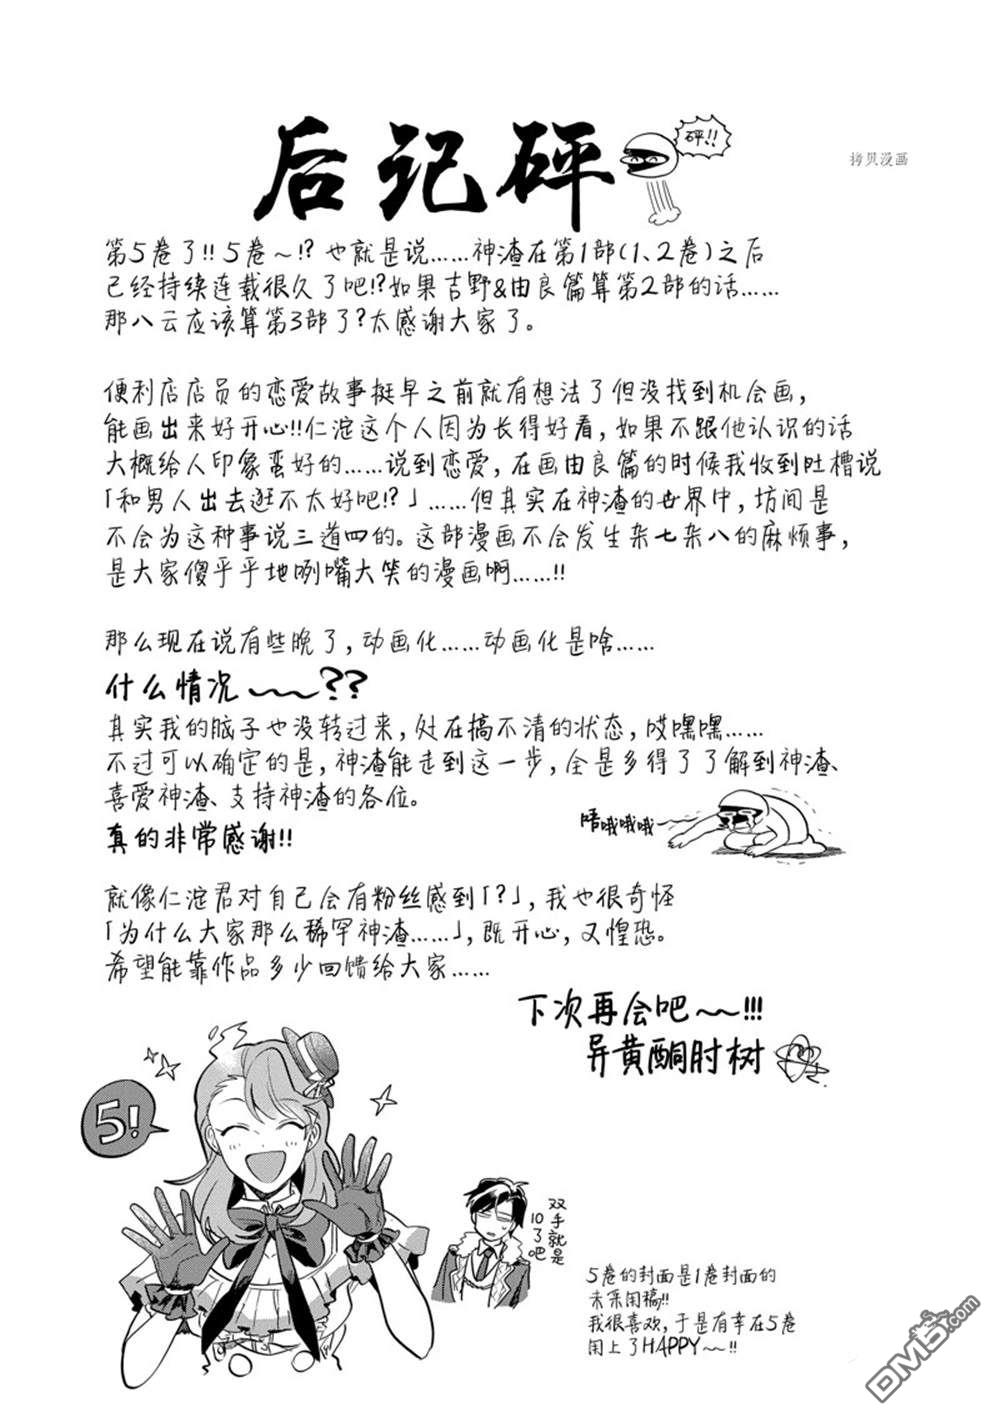 后记砰
砰!!
拷贝漫画
第5卷了!!5卷~!?也就是说……神渣在第1部(1、2卷)之后
已经持续连载很久了吧!?如果吉野&由良篇算第2部的话……
那八云应该算第3部了?太感谢大家了。
便利店店员的恋爱故事挺早之前就有想法了但没找到机会画,
能画出来好开心!!仁淀这个人因为长得好看,如果不跟他认识的话
大概给人印象蛮好的……说到恋爱,在画由良篇的时候我收到吐槽说
「和男人出去逛不太好吧!?」……但其实在神渣的世界中,坊间是
不会为这种事说三道四的。这部漫画不会发生杂七杂八的麻烦事,
是大家傻乎乎地咧嘴大笑的漫画啊……!!
那么现在说有些晚了,动画化……动画化是啥……
什么情况~~??
其实我的脑子也没转过来,处在搞不清的状态,哎嘿嘿……
不过可以确定的是,神渣能走到这一步,全是多得了了解到神渣、
喜爱神渣、支持神渣的各位。
真的非常感谢!!
唔哦哦哦
就像仁淀君对自己会有粉丝感到「?」,我也很奇怪
「为什么大家那么稀罕神渣……」,既开心,又惶恐。
希望能靠作品多少回馈给大家……
下次再会吧~~!!!
异黄酮肘树
5!
双手就是
10了吧
5卷的封面是1卷封面的
未采用稿!!
我很喜欢,于是有幸在5卷
用上了HAPPY~~!!
DM5.com